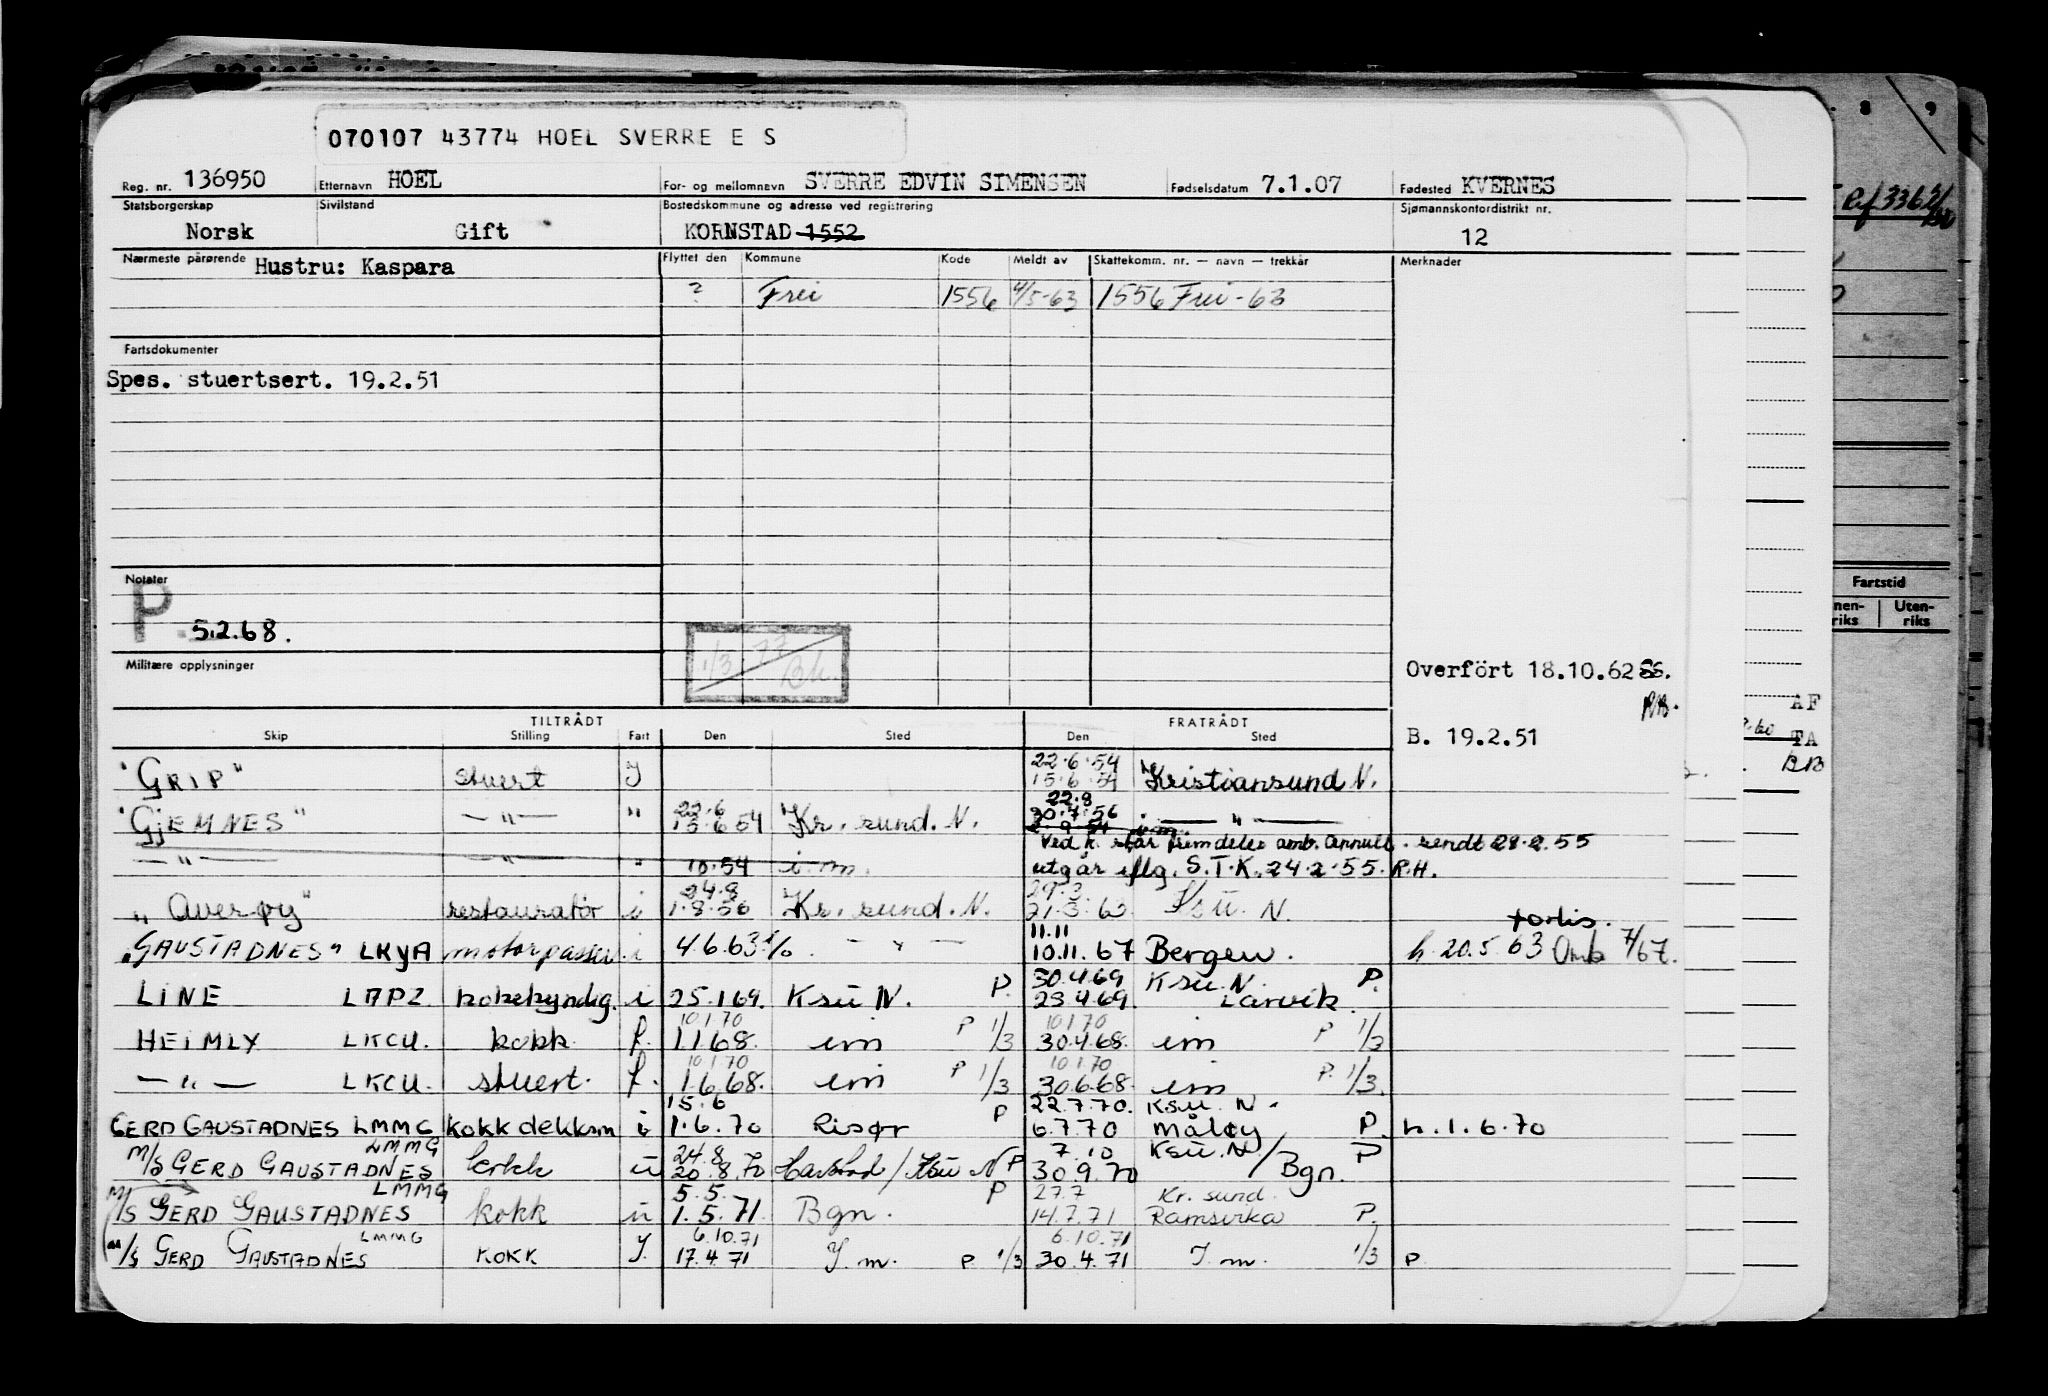 070107 43774 HOEL SVERRE E S
Reg. nr. 136950 Etternavn HOEL For- og mellomnavn SVERRE EDVIN SIMENSEN Fødselsdatum 7.1.07 Fødested KVERNES
Statsborgerskap Sivilstand Bostedskommune og adresse ved registrering Sjømannskontordistrikt nr.
Norsk Gift KORNSTAD 1552 12
Nærmeste pårørende Hustru: Kaspara Flyttet den Kommune Kode Meldt av Skattekomm. nr. — navn — trekkår Merknader
? Frei 1556 4/5-63 1556 Frei - 63
Fartsdokumenter
Spes. stuertsert. 19.2.51
Notater
P 5.2.68.
1/3 77
Militære opplysninger
Overfört 18.10.62 SS.
RB.
TILTRÅDT FRATRÅDT
Skip Stilling Fart Den Sted Den Sted
B. 19.2.51
22.6.54
"GRIP" stuert I 15.6.54 Kristiansund N.
22.8
22.6 30.7.56
"GJEMNES" — " — " 15.6.54 Kr. sund. N. 2.9.54 i.m. — " —
Ved k. står fremdeles omb. Annull. sendt 29.2.55
— " — — " — " 10.54 i.m. utgår iflg. S.T.K. 24.2.55. R.H.
24.8 29.3
"Averøy" restauratør i 1.8.56 Kr. sund. N. 21.3.63 Ksu. N.
11.11
"GAUSTADNES" LKYA motorpasser i 4.6.63 — " — 10.11.67 Bergen. h. 20.5.63 Omb 7/67.
30.4.69 Ksu. N. P.
LINE kokekyndig. i 25.1.69. Ksu N. P. 23.4.69. Larvik.
10.1.70 10.1.70
HEIMLY LKCU. kokk f. 1.1.68. i.m P 1/3 30.4.68. i.m P 1/3
10.1.70 10.1.70
— " — LKCU. stuert. f. 1.6.68. i.m P 1/3 30.6.68. i.m P. 1/3.
15.6 22.7.70. Ksu. N.
GERD GAUSTADNES LMMG kokk dekksm i 1.6.70 Risør P 6.7.70 Måløy P. h. 1.6.70
LMMG 24.8 7.10 Ksu. N
M/S GERD GAUSTADNES kokk u 20.8.70 Harstad / Ksu N P 30.9.70 / Bgn. P
LMMG 5.5. 27.7 Kr. sund.
M/S GERD GAUSTADNES kokk u 1.5.71. Bgn. P 14.7.71 Ramsvika P.
LMMG 6.10.71 6.10.71
M/S GERD GAUSTADNES KOKK I. 17.4.71 I.m. P 1/3 30.4.71 I.m. 1/3 P
8 9
Fartstid
Uten-
riks riks
AF
TA
BB